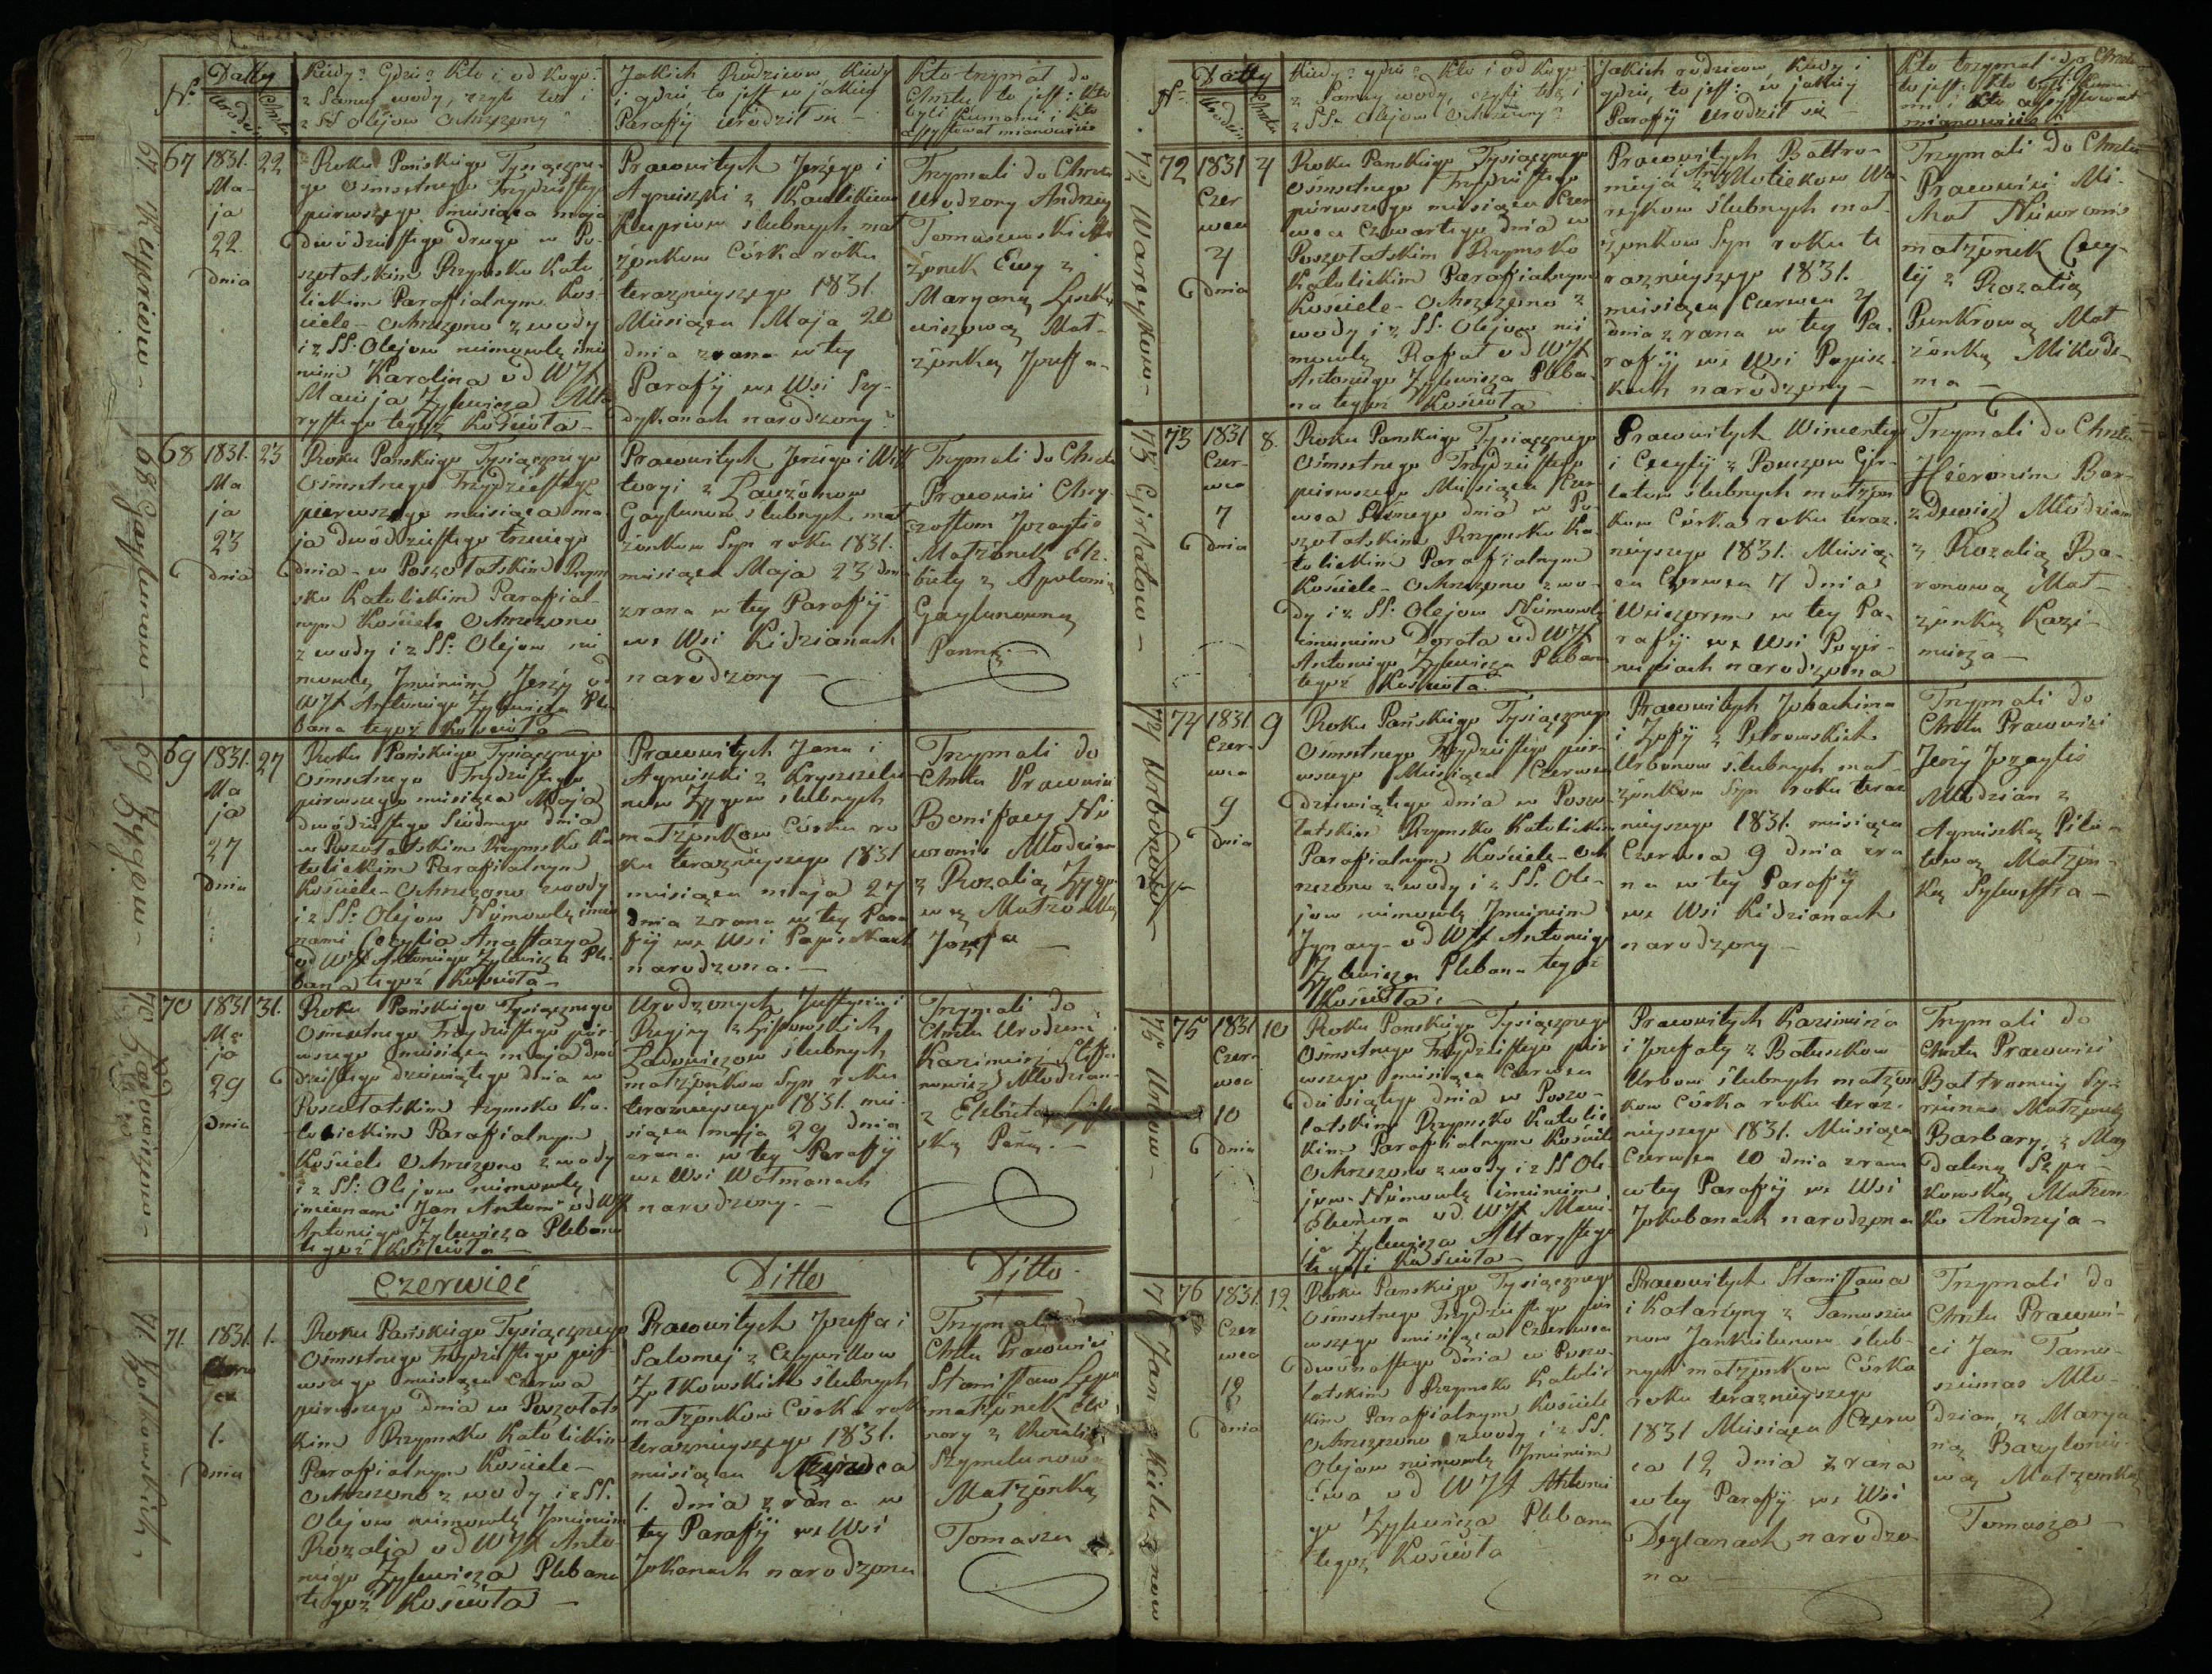 N.
Datty
Urodzin
Chrztu
Kiedy? Gdzie? Kto i od kogo?
z Samey wody, czyli też i
z SS Olejow Ochrzczony
Jakich Rodzicow, Kiedy
i gdzie, to jest w jakiey
Parafij urodził się —
Kto trzymał do
Chrztu to jest: Kto
byli Kumami i kto
assystował mianowicie
67. Kupriow —
67
1831.
Ma-
ja
22.
dnia
22
Roku Pańskiego Tysiączne-
go Osmsetnego Trzydziestego
pierwszego miesiąca maja
dwódziestego drugo w Po-
szołatskim Rzymsko Kato
lickim Parafialnym Koś-
ciele — Ochrzczono z wody
i z SS: Olejow niemowlę imie
niem Karolina od WJX
Macieja Żylewicza Alta
rystego tegoż Kościoła —
Prawowitych Jerzego i
Agnieszki z
Kupriow slubnych mał
żonkow Córka roku
teraznieyszego 1831.
Miesiąca Maja 22
dnia z rana w tey
Parafij we Wsi Szy-
dyszkanach narodzony
Trzymali do Chrztu
Urodzony Andrzey
Tomaszewski Mał
żonek Ewy z
Maryaną Luszke
wiczową Mał-
żonką Jozefa —
68 Gaylunow —
68
1831.
Ma
ja
23
dnia
23
Roku Pańskiego Tysiącznego
Osmsetnego Trzydziestego
pierwszego miesiąca ma-
ja dwódziestego trzeciego
dnia — w Poszołatskim Rzym
sko Katolickim Parafial-
nym Kościele Ochrzczono
z wody i z SS: Olejow nie
mowlę Imieniem Jerzy od
WJX Antoniego Żylewicza Ple
bana tegoż Kościoła —
Prawowitych Jerzego i Wik
toryi z Lauzonow
Gaylunow slubnych mał
żonkow Syn roku 1831.
miesiąca Maja 23 dnia
z rana w tey Parafij
we Wsi Kidzianach
narodzony —
Trzymali do Chrztu
Prawowici Chry-
zostom Jozaytis
Małżonek Elż-
biety z Apolonią
Gaylunowną
Panną. —
69 Zygow —
69
1831.
Ma
ja
27
dnia
27
Roku Pańskiego Tysiącznego
Osmsetnego Trzydziestego
pierwszego miesiąca Maja
dwódziestego Siódmego dnia
w Poszołatskim Rzymsko Ka
tolickim Parafialnym
Kościele — Ochrzczono z wody
i z SS: Olejow Niemowlę imio
nami Cecylia Anastazya
od WJX Antoniego Żylewicza Ple-
bana tegoż Kościoła —
Prawowitych Jana i
Agnieszki z Kryszczelu
now Zygow slubnych
małżonkow Córka ro
ku teraznieyszego 1831
miesiąca maja 27
dnia z rana w tey Para
fij we Wsi Papiszkach
narodzona. —
Trzymali do
Chrztu Prawowici
Bonifacy Nie
wronis Młodzian
z Rozalią Zygo-
wą Małżonką
Jozefa —
70 Ladowiczow —
70
1831
Ma
ja
29
dnia
31.
Roku Pańskiego Tysiącznego
Osmsetnego Trzydziestego pier-
wszego miesiąca maja dwó
dziestego dziewiątego dnia w
Poszołatskim rzymsko Ka-
tolickim Parafialnym
Kościele Ochrzczono z wody
i z SS: Olejow niemowlę
imionami Jan Antoni od WJX
Antoniego Żylewicza Plebana
tegoż Kościoła —
Urodzonych Justyna i
Reginy z Lissowskich
Ladowiczow slubnych
małżonkow Syn roku
teraznieyszego 1831. mie-
siąca maja 29 dnia
z rana w tey Parafij
we Wsi Wotmanach
narodzony. —
Trzymali do
Chrztu Urodzeni
Kazimierz Steffa
nowicz Młodzian
z Elżbietą
ską Panną. —
Czerwiec
Ditto
Ditto
71. Zołkowskich —
71.
1831.
1.
dnia
1.
Roku Pańskiego Tysiącznego
Osmsetnego Trzydziestego pier-
wszego miesiąca Czerwca
pierwszego dnia w Poszołats
kim Rzymsko Katolickim
Parafialnym Kościele —
Ochrzczono z wody i z SS.
Olejow niemowlę Imieniem
Rozalja od WJX Anto-
niego Żylewicza Plebana
tegoż Kościoła —
Prawowitych Jozefa i
Salomej z Czywillow
Zołkowskich slubnych
małżonkow Córka roku
teraznieyszego 1831.
miesiąca Czerwca
1. dnia z rana w
tey Parafij we Wsi
Jokanach narodzona
Trzymali
Chrztu Prawowici
Stanisław
małżonek Eleo
nory z Rozalią
Szymelunową
Małżonką
Tomasza
N.
Datty
Urodzin
Chrztu
Kiedy? gdzie? Kto i od Kogo?
z Samey wody, czyli też i
z SS. Olejow Ochrzczony?
Jakich rodzicow, Kiedy i
gdzie, to jest: w jakiey
Parafij urodził się —
Kto trzymał do Chrztu
to jest: Kto byli Kuma-
mi i Kto assystował
mianowicie:
72 Wareykow —
72
1831
Czer
wca
4
dnia
4
Roku Panskiego Tysiącznego
Osmsetnego Trzydziestego
pierwszego miesiąca Czer
wca Czwartego dnia w
Poszołatskim Rzymsko
Katolickim Parafialnym
Kościele — Ochrzczono z
wody i z SS. Olejow nie
mowlę Rafał od WJX
Antoniego Żylewicza Pleba-
na tegoż Kościoła
Prawowitych Bałtro-
mieja z Motiekow Wa-
reykow slubnych mał-
żonkow Syn roku te
raznieyszego 1831.
miesiąca Czerwca 4
dnia z rana w tey Pa-
rafij we Wsi Papisz-
kach narodzony —
Trzymali do Chrztu
Prawowici Mi-
chał Niewronis
małżonek Cecy-
lij z Rozalią
Punkrową Mał
żonką Mikode-
ma —
73 Girlatow —
73
1831
Czer-
wca
7
dnia
8.
Roku Panskiego Tysiącznego
Osmsetnego Trzydziestego
pierwszego Miesiąca Czer-
wca Siomego dnia w Po-
szołatskim Rzymsko Ka-
tolickim Parafialnym
Kościele — Ochrzczono z wo-
dy i z SS. Olejow Niemowlę
imieniem Dorota od WJX
Antoniego Żylewicza Plebana
tegoż Kościoła. —
Prawowitych Wincentego
i Cecylij z Rouczow Gir-
latow slubnych małżon
kow Córka roku teraz-
nieyszego 1831. Miesią-
ca Czerwca 7 dnia
Wieczorem w tey Pa-
rafij we Wsi Pogir-
niejach narodzona
Trzymali do Chrztu
Hieronim Bor-
zdewicz Młodzian
z Rozalią Ba-
ronową Mał-
żonką Kazi-
mierza —
74 Urbonow —
74
1831
Czer-
wca
9
dnia
9
Roku Pańskiego Tysiącznego
Osmsetnego Trzydziestego pier-
wszego Miesiąca Czerwca
dziewiątego dnia w Poszo-
łatskim Rzymsko Katolickim
Parafialnym Kościele — Och
rzczono z wody i z SS. Ole-
jow niemowlę Imieniem
Ignacy — od WJX Antoniego
Żylewicza Plebana tegoż
Kościoła: —
Prawowitych Johachima
i Zofij z Petrowskich
Urbonow slubnych mał-
żonkow Syn roku teraz
nieyszego 1831. miesiąca
Czerwca 9 dnia z ra
na w tey Parafij
we Wsi Kidzianach
narodzony —
Trzymali do
Chrztu Prawowici
Jerzy Jozaytis
Młodzian z
Agnieszką Pilu-
tową Małżon-
ką Sylwestra —
75 Urbow —
75
1831
Czer-
wca
10
dnia
10
Roku Panskiego Tysiącznego
Osmsetnego Trzydziestego pier
wszego miesiąca Czerwca
dziesiątego dnia w Poszo-
łatskim Rzymsko Katolic
kim Parafialnym Kościele
Ochrzczono z wody i z SS Ole-
jow — Niemowlę imieniem
Eleonora od WJX Macie-
ja Żylewicza Altarystego
tegoż Kościoła —
Prawowitych Kazimierza
i Jozefaty z Bołuszkow
Urbow slubnych małżon
kow Córka roku teraz-
nieyszego 1831. Miesiąca
Czerwca 10 dnia z rana
w tey Parafij we Wsi
Jokubanach narodzona
Trzymali do
Chrztu Prawowici
Bałtromiey Sy-
riunas Małżonek
Barbary, z Mag
daleną Szpa-
kowską Małżon-
ką Andrzeja —
76
76
1831.
Czer
wca
12
dnia
12
Roku Panskiego Tysiącznego
Osmsetnego Trzydziestego pier
wszego miesiąca Czerwca
dwunastego dnia w Poszo-
łatskim Rzymsko Katolic
kim Parafialnym Kościele
Ochrzczono z wody i z SS.
Olejow niemowlę Imieniem
Ewa od WJX Antonie
go Żylewicza Plebana
tegoż Kościoła
Prawowitych Stanisława
i Katarzyny z Tamosziu
now Jankielunow slub-
nych małżonkow Córka
roku teraznieyszego
1831 Miesiąca Czerw
ca 12 dnia z rana
w tey Parafij we Wsi
Deglanach narodzo-
na
Trzymali do
Chrztu Prawowi-
ci Jan Tamo-
sziunas Mło-
dzian z Marya
ną Bazylonio-
wą Małżonką
Tomasza —